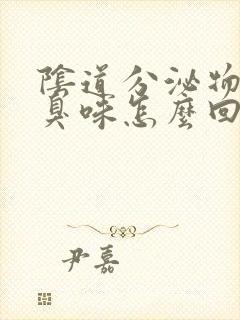 陰道分泌物
臭味怎麼回
尹嘉